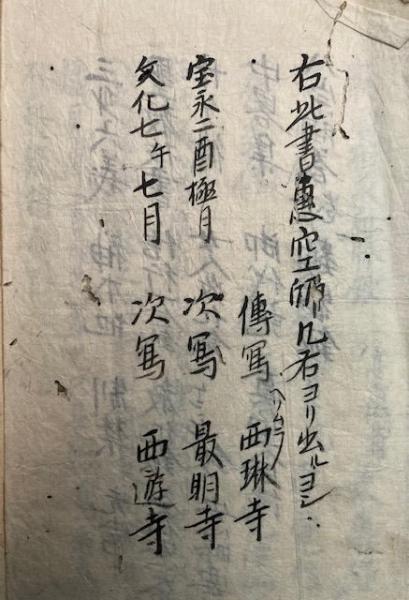 右此書惠空師几右ヨリ出ルヨシ
傳寫 西琳寺
宝永二酉極月 次寫 最明寺
文化七午七月 次寫 西遊寺